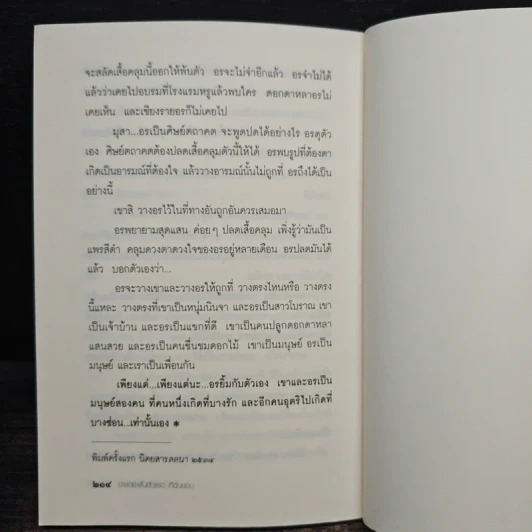 จะสลัดเสื้อคลุมนี้ออกให้พ้นตัว อรจะไม่จำอีกแล้ว อรจำไม่ได้
แล้วว่าเคยไปอบรมที่โรงแรมหรูแล้วพบใคร ดอกดาหลาอรไม่
เคยเห็น และเชียงรายอรก็ไม่เคยไป
มุสา...อรเป็นศิษย์ตถาคต จะพูดปดได้อย่างไร อรดุตัว
เอง ศิษย์ตถาคตต้องปลดเสื้อคลุมตัวนี้ให้ได้ อรพบรูปที่ต้องตา
เกิดเป็นอารมณ์ที่ต้องใจ แล้ววางอารมณ์นั้นไม่ถูกที่ อรถึงได้เป็น
อย่างนี้
เขาสิ วางอรไว้ในที่ทางอันถูกอันควรเสมอมา
อรพยายามสุดแสน ค่อยๆ ปลดเสื้อคลุม เพิ่งรู้ว่ามันเป็น
แพรสีดำ คลุมดวงตาดวงใจของอรอยู่หลายเดือน อรปลดมันได้
แล้ว บอกตัวเองว่า...
อรจะวางเขาและวางอรให้ถูกที่ วางตรงไหนหรือ วางตรง
นี้แหละ วางตรงที่เขาเป็นหนุ่มนินจา และอรเป็นสาวโบราณ เขา
เป็นเจ้าบ้าน และอรเป็นแขกที่ดี เขาเป็นคนปลูกดอกดาหลา
แสนสวย และอรเป็นคนชื่นชมดอกไม้ เขาเป็นมนุษย์ อรเป็น
มนุษย์ และเราเป็นเพื่อนกัน
เพียงแต่...เพียงแต่นะ...อรยิ้มกับตัวเอง เขาและอรเป็น
มนุษย์สองคน ที่คนหนึ่งเกิดที่บางรัก และอีกคนอุตริไปเกิดที่
บางซ่อน...เท่านั้นเอง
พิมพ์ครั้งแรก นิตยสารลลนา ๒๕๓๔
๒๑๔